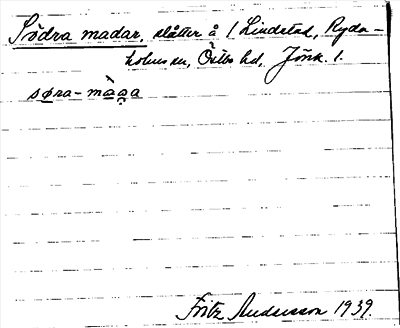 Södra madar, slåtter å 1 Lindstad, Ryda-
holms sn, Östbo hd, Jönk. l.
søra-màa̯a
Fritz Andersson 1939.